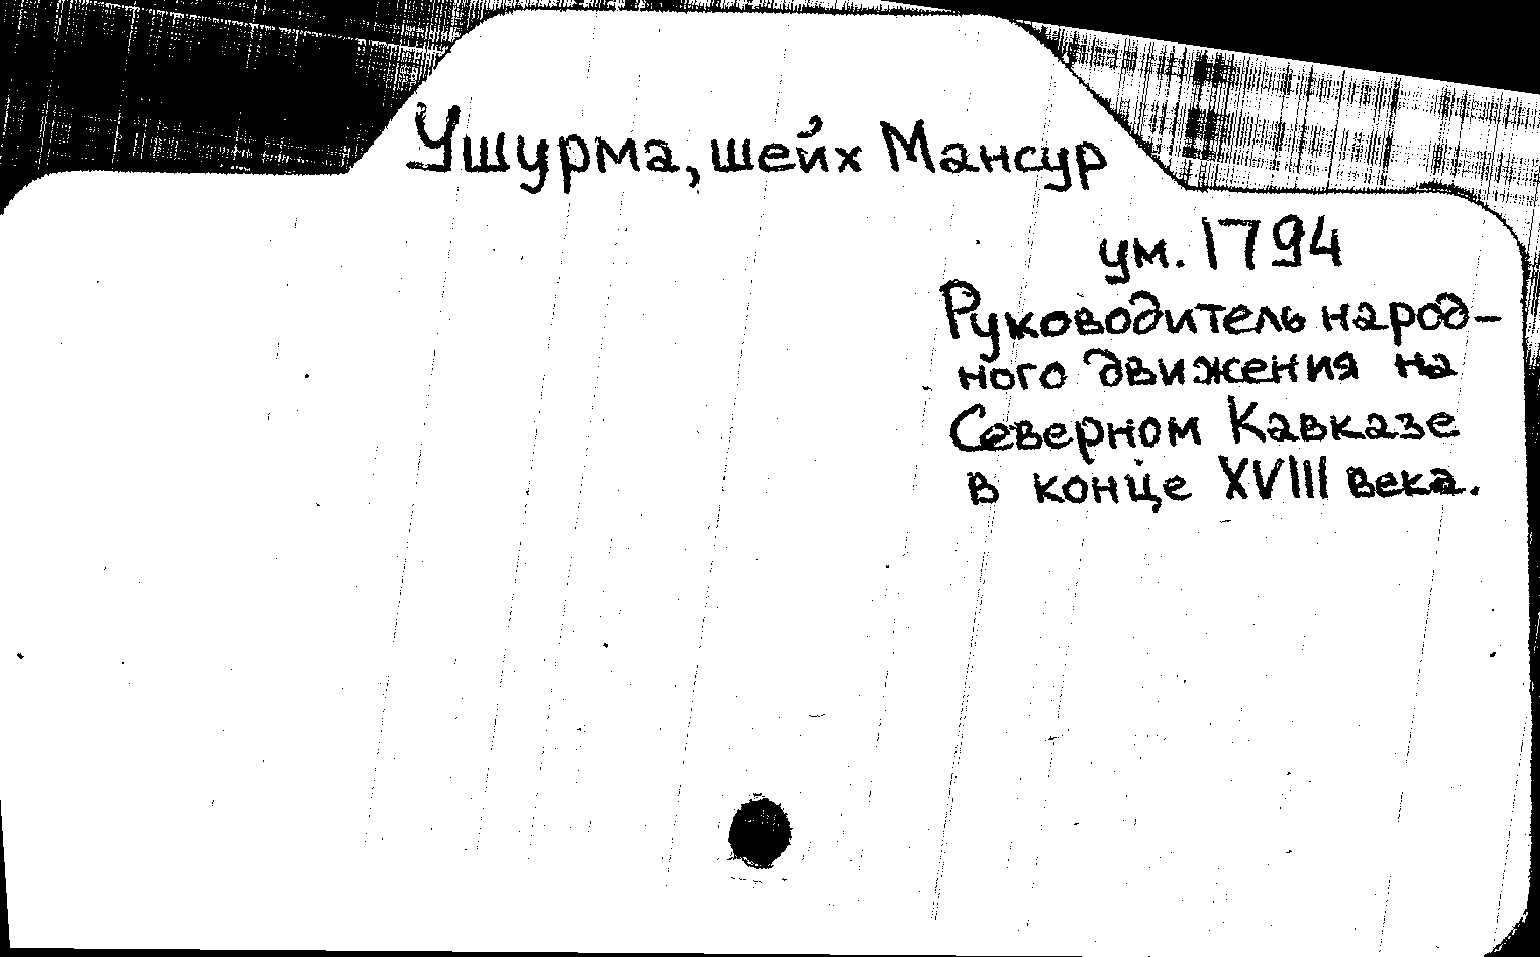 Ушурма, шейх Мансур
ум. 1794
Руководитель народ-
ного движения на
Северном Кавказе
в конце XVIII века.